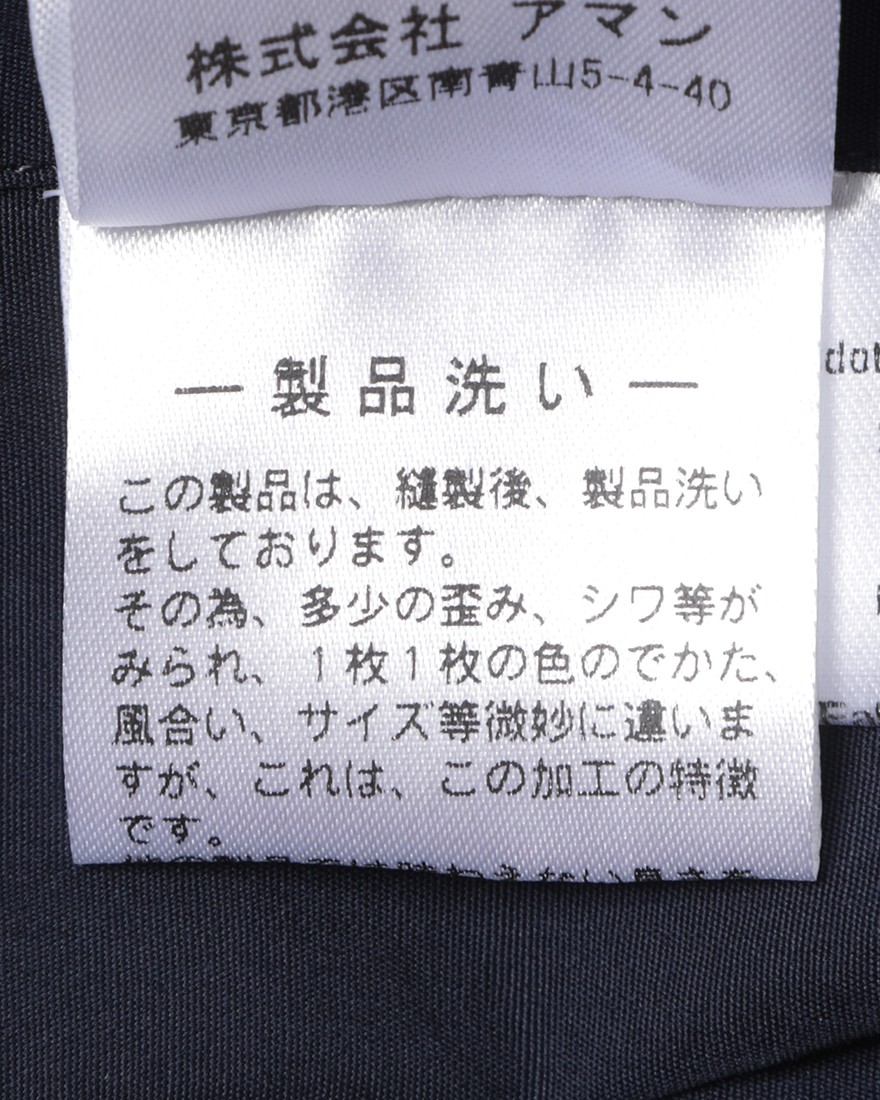 株式会社 アマン
東京都港区南青山5-4-40
― 製品洗い ―
この製品は、縫製後、製品洗い
をしております。
その為、多少の歪み、シワ等が
みられ、1枚1枚の色のでかた、
風合い、サイズ等微妙に違いま
すが、これは、この加工の特徴
です。